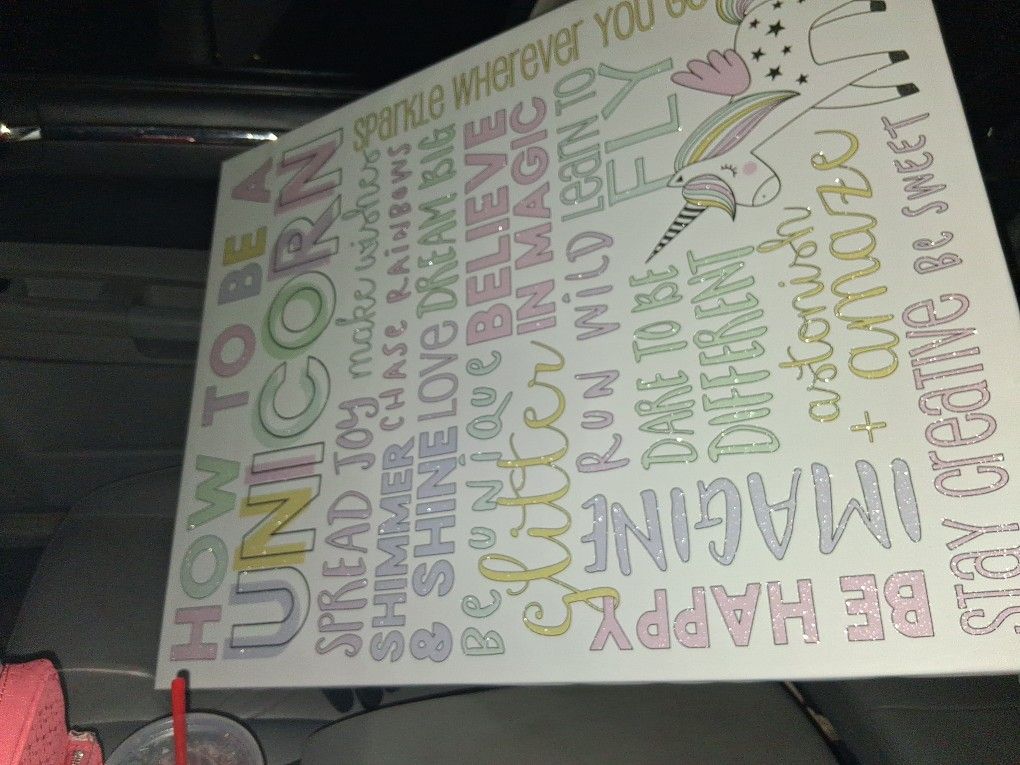 HOW TO BE A
UNICORN
SPREAD JOY make wishes
SHIMMER CHASE RAINBOWS
& SHINE LOVE DREAM BIG
Be UNiQUe BELIEVE
IN MAGIC
glitter
RUN WiLD LeaRN TO
FLY
DARE TO BE
DIFFERENT
IMAGINE
BE HAPPY
astonish
+ amaze
STAY CReaTiVe Be SWEET
SPaRKLe WHeReVeR YOU GO